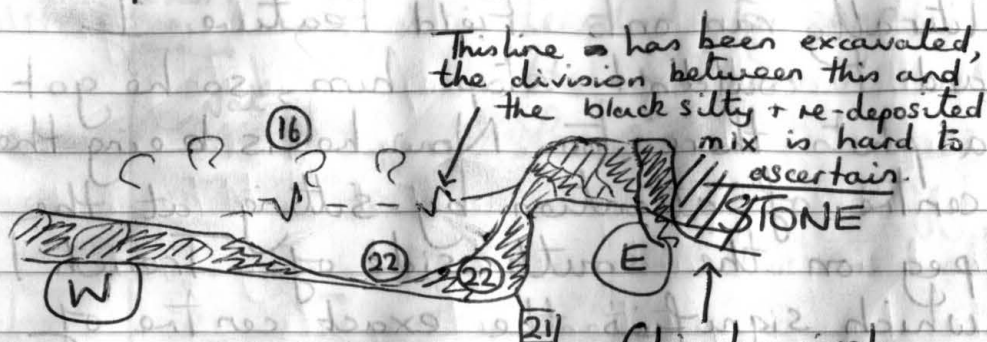 This line has been excavated,
the division between this and
the black silty + re-deposited
mix is hard to
ascertain.
16
? ? ? ?
STONE
22
22
E
W
21